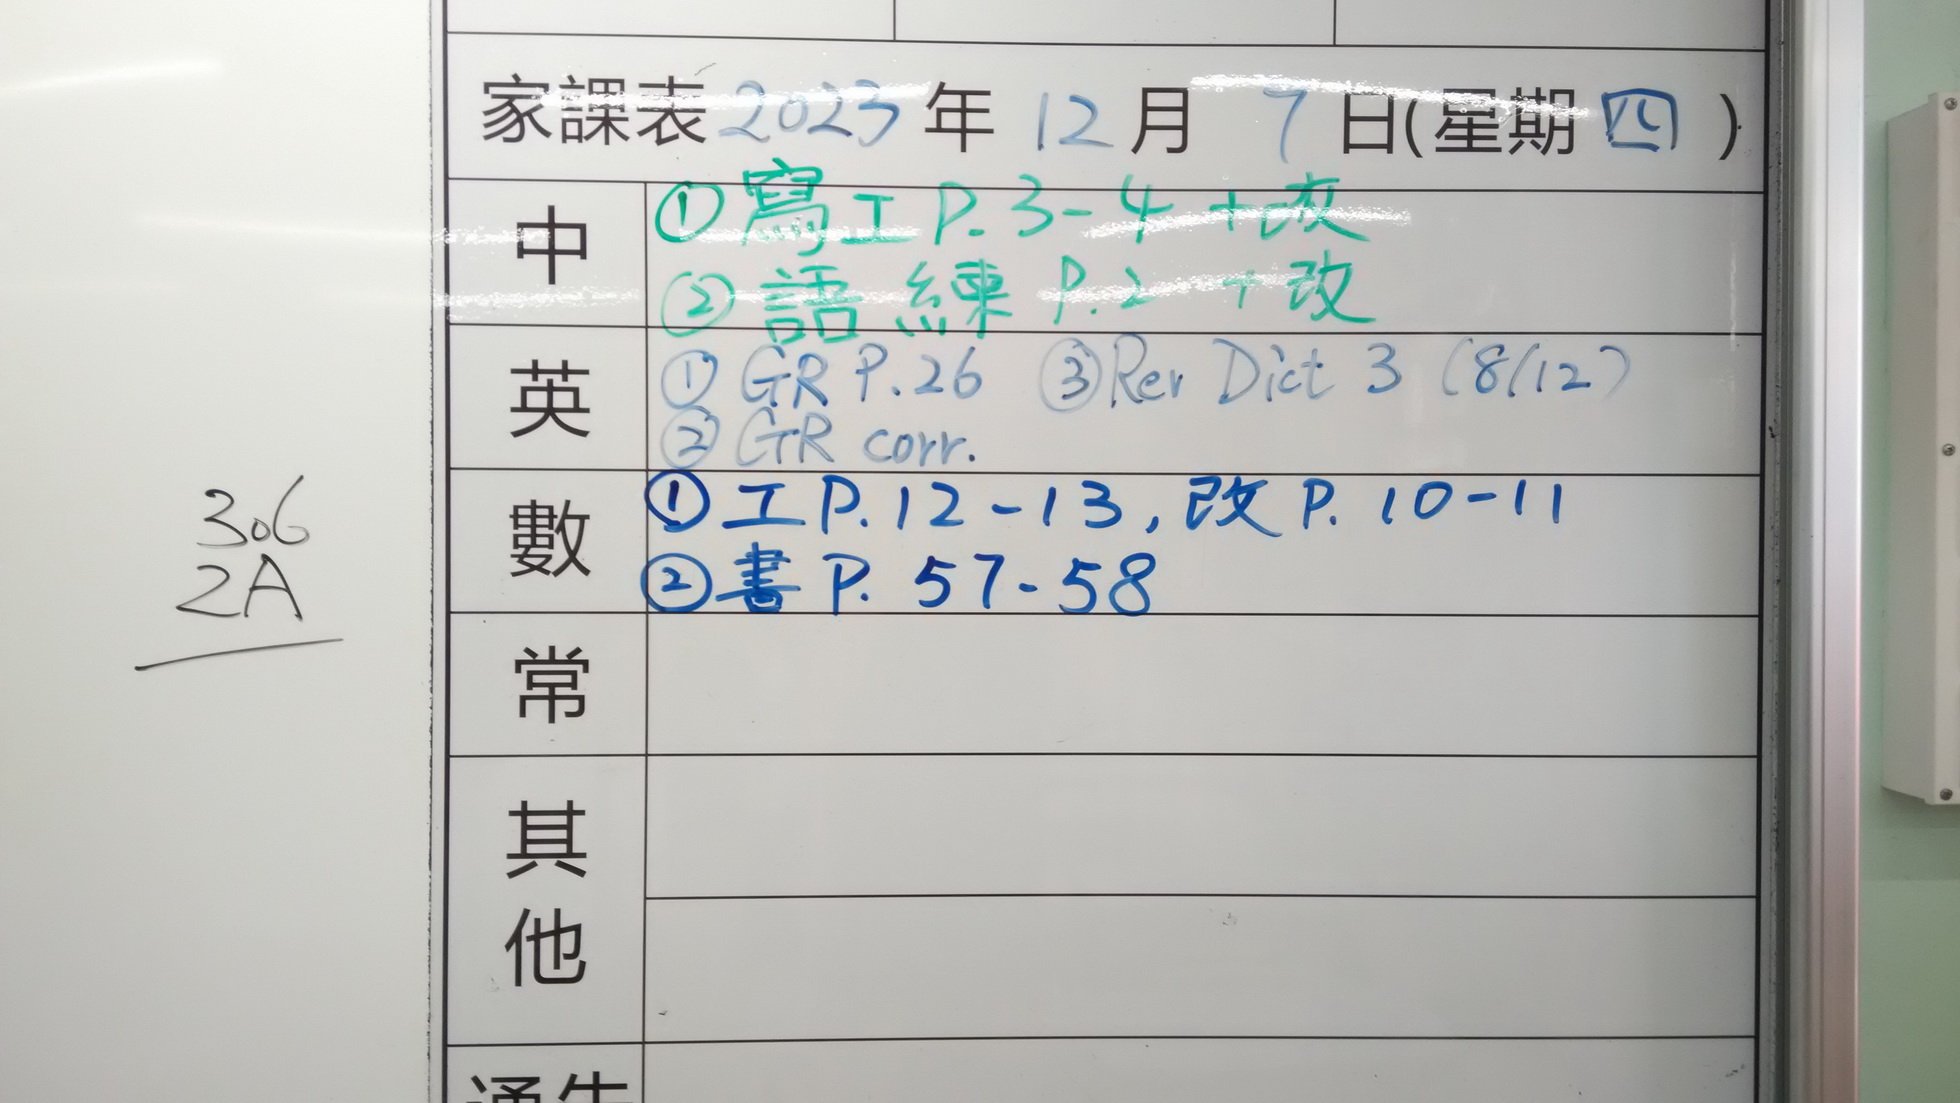 家課表 2023 年 12 月 7 日(星期 四 )
中
① 寫工 P. 3-4 +改
② 語練 P.2 +改
英
① GR P.26 ③ Rev Dict 3 (8/12)
② GR corr.
數
① 工 P. 12-13, 改 P. 10-11
② 書 P. 57-58
常
其他
通告
306
2A